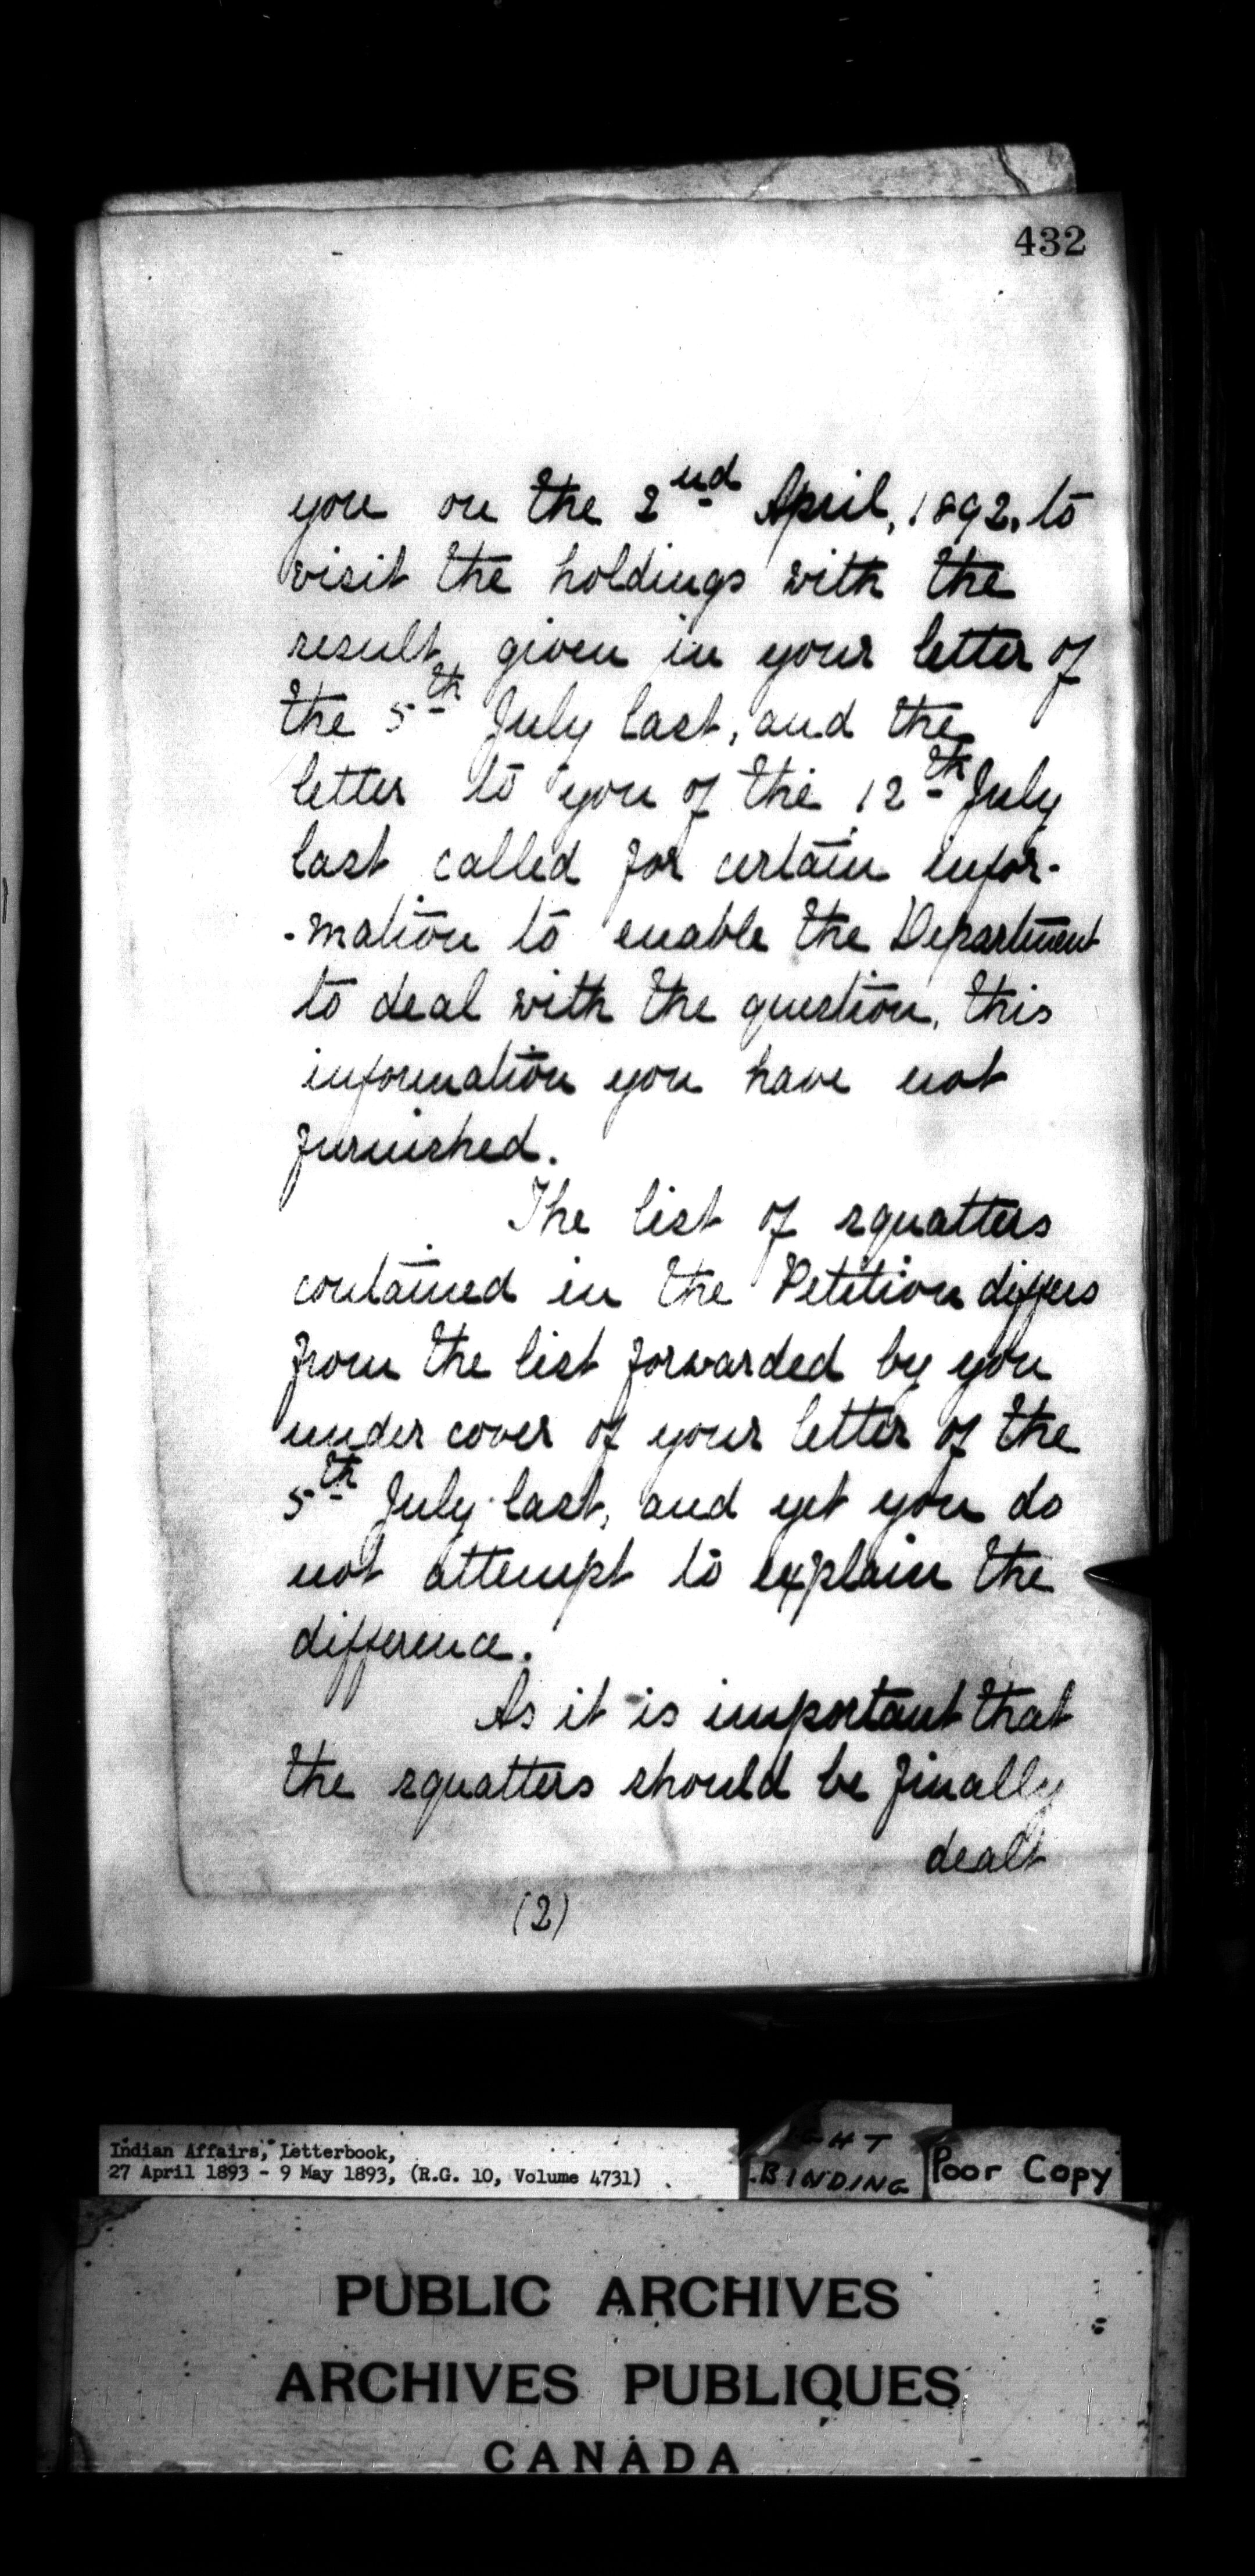 432
you on the 2nd April, 1892, to
visit the holdings with the
result given in your letter of
the 5th July last, and the
letter to you of the 12th July
last called for certain infor-
-mation to enable the Department
to deal with the question, this
information you have not
furnished.
The list of squatters
contained in the Petition differs
from the list forwarded by you
under cover of your letter of the
5th July last, and yet you do
not attempt to explain the
difference.
As it is important that
the squatters should be finally
dealt
(2)
Indian Affairs, Letterbook,
27 April 1893 - 9 May 1893, (R.G. 10, Volume 4731)
BINDING
Poor Copy
PUBLIC ARCHIVES
ARCHIVES PUBLIQUES
CANADA